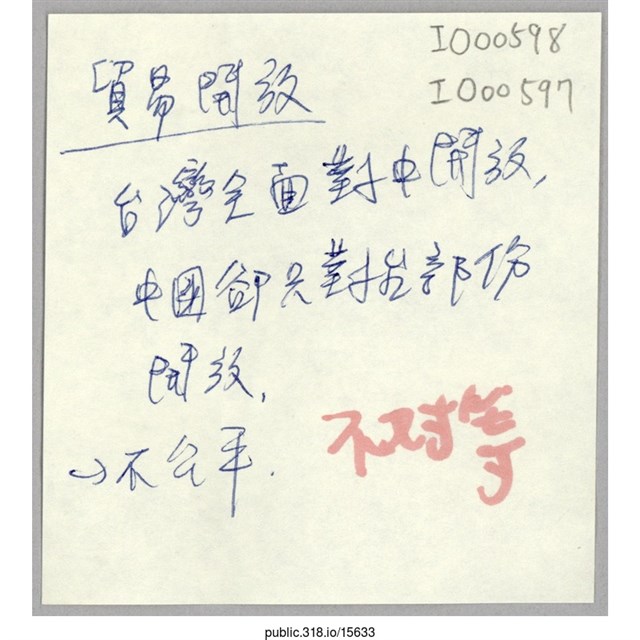 IO00598
IO00597
貿易開放
台灣全面對中開放,
中國卻只對台部份
開放,
→不公平.
不对等
public.318.io/15633